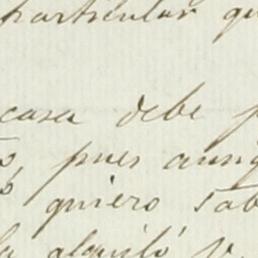 particular qu
casa debe p
pues aunq
quiero sab
la alquiló y.